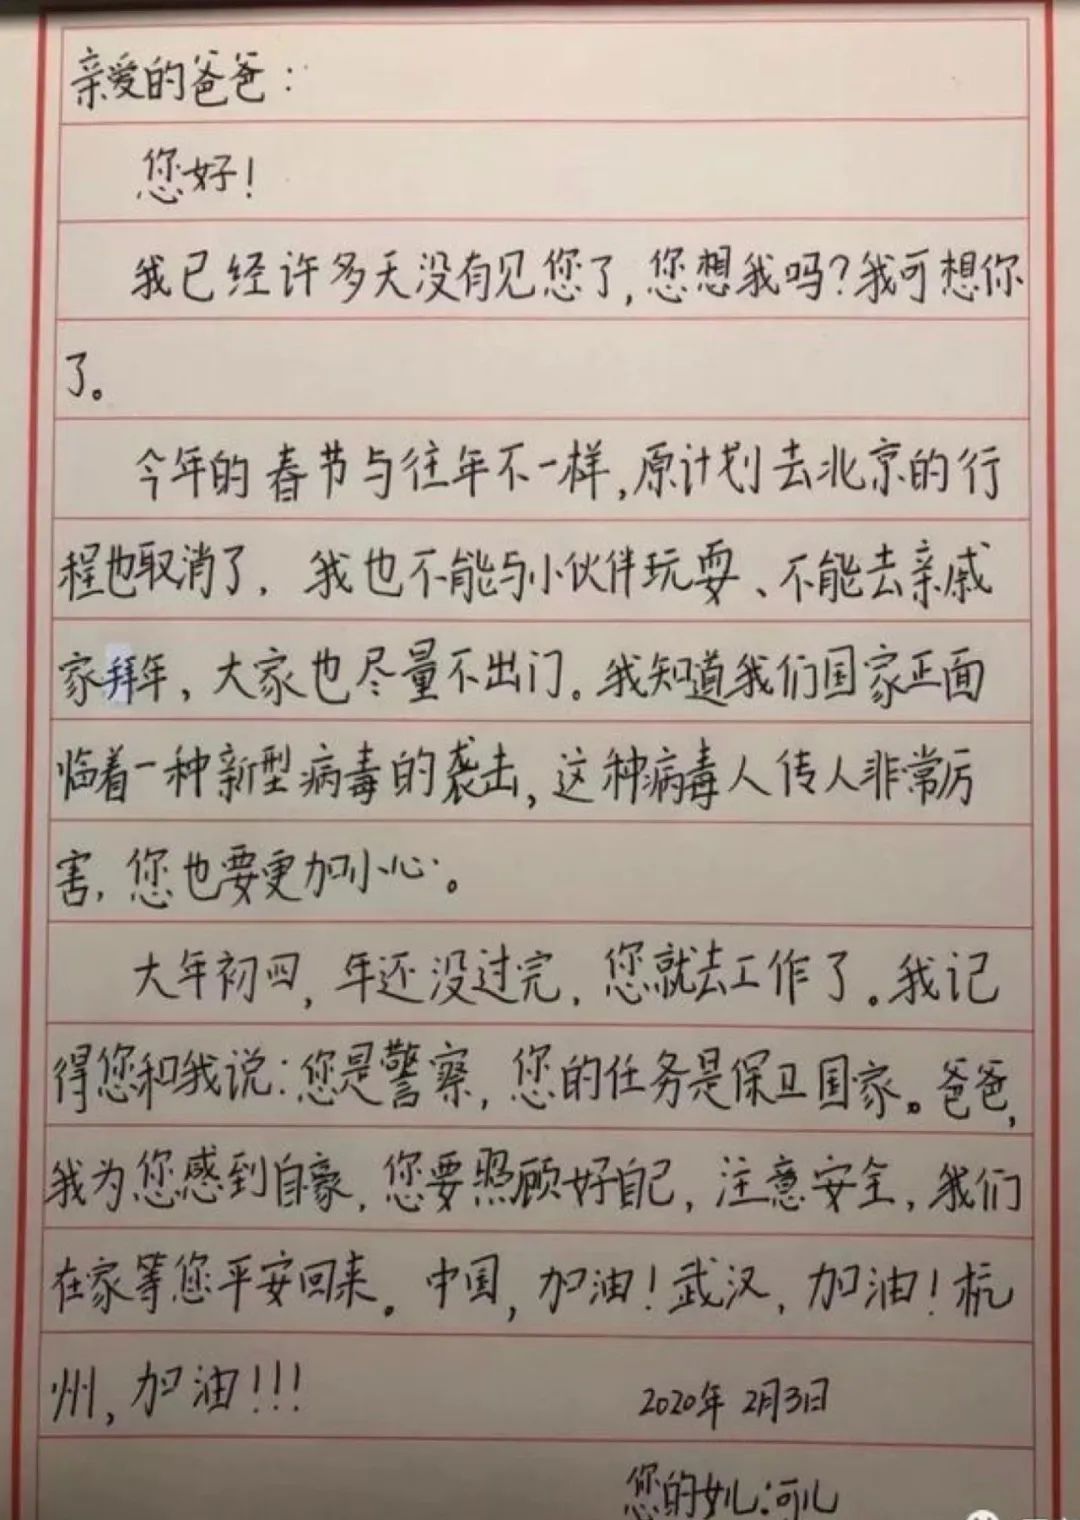 亲爱的爸爸：
您好！
我已经许多天没有见您了，您想我吗？我可想你
了。
今年的春节与往年不一样，原计划去北京的行
程也取消了，我也不能与小伙伴玩耍、不能去亲戚
家拜年，大家也尽量不出门。我知道我们国家正面
临着一种新型病毒的袭击，这种病毒人传人非常厉
害，您也要更加小心。
大年初四，年还没过完，您就去工作了。我记
得您和我说：您是警察，您的任务是保卫国家。爸爸，
我为您感到自豪，您要照顾好自己，注意安全，我们
在家等您平安回来。中国，加油！武汉，加油！杭
州，加油！！！
2020年2月3日
您的女儿：可儿